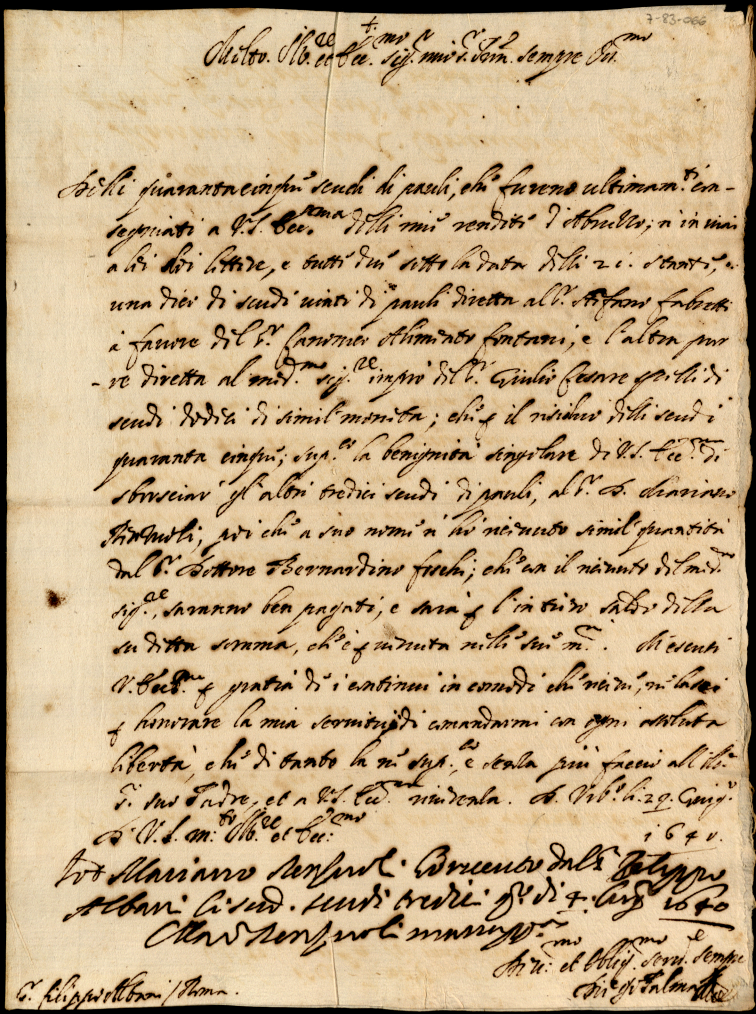 7-83-066
Molto Ill.re et Ecc.mo sig.r mio s.r oss.mo sempre
Delli quarantacinque scudi di pauli, che furono ultimam.te con-
segniati a V.S. Ecc.ma delli miei renditi d'Abruzzo; n'inviai
a lei due lettere, e tutte due sotto la data delli 21. stante,
una di scudi vinti di pauli diretta al s.r Stefano Fabretti
à favore del s.r Canonico Fontani; e l'altra pur
re diretta al med.mo sig.re del s.r Giulio Cesare Grilli di
scudi dodici di simil moneta; che p il residuo delli scudi
quaranta cinque; sup.co la benignità singolare di V.S. Ecc.ma di
sborsciare gl'altri tredici scudi di pauli, al s.r D. Mariano
poi che a suo nome n'hò riceuuto simil quantità
dal s.r Dottore Bernardino Foschi; che con il riceuuto del med.mo
sig.re, saranno ben pagati, e sarà p l'intiero saldo della
su detta somma, che è peruenuta nelle sue m.ni. Mi scusi
V. Ecc.ma p gratia de i continui incomodi che riceue, ne lasci
p honorare la mia seruitù di comandarmi con ogni assoluta
libertà, che di tanto la ne sup.co, e senza più faccio all'
s.r suo Padre, et a V.S. Ecc.ma riuerenza. D. li 29. Giug.o
D. V.S. m.to Ill.re et Ecc.ma
1640.
Io D Mariano ho riceuuto dal s.r Filippo
Albani li sud. scudi tredici q.o di 4. lug.o 1640
Mariano mano pp.a
et Oblig.mo seru.re sempre
s.r Filippo Albani / Roma.